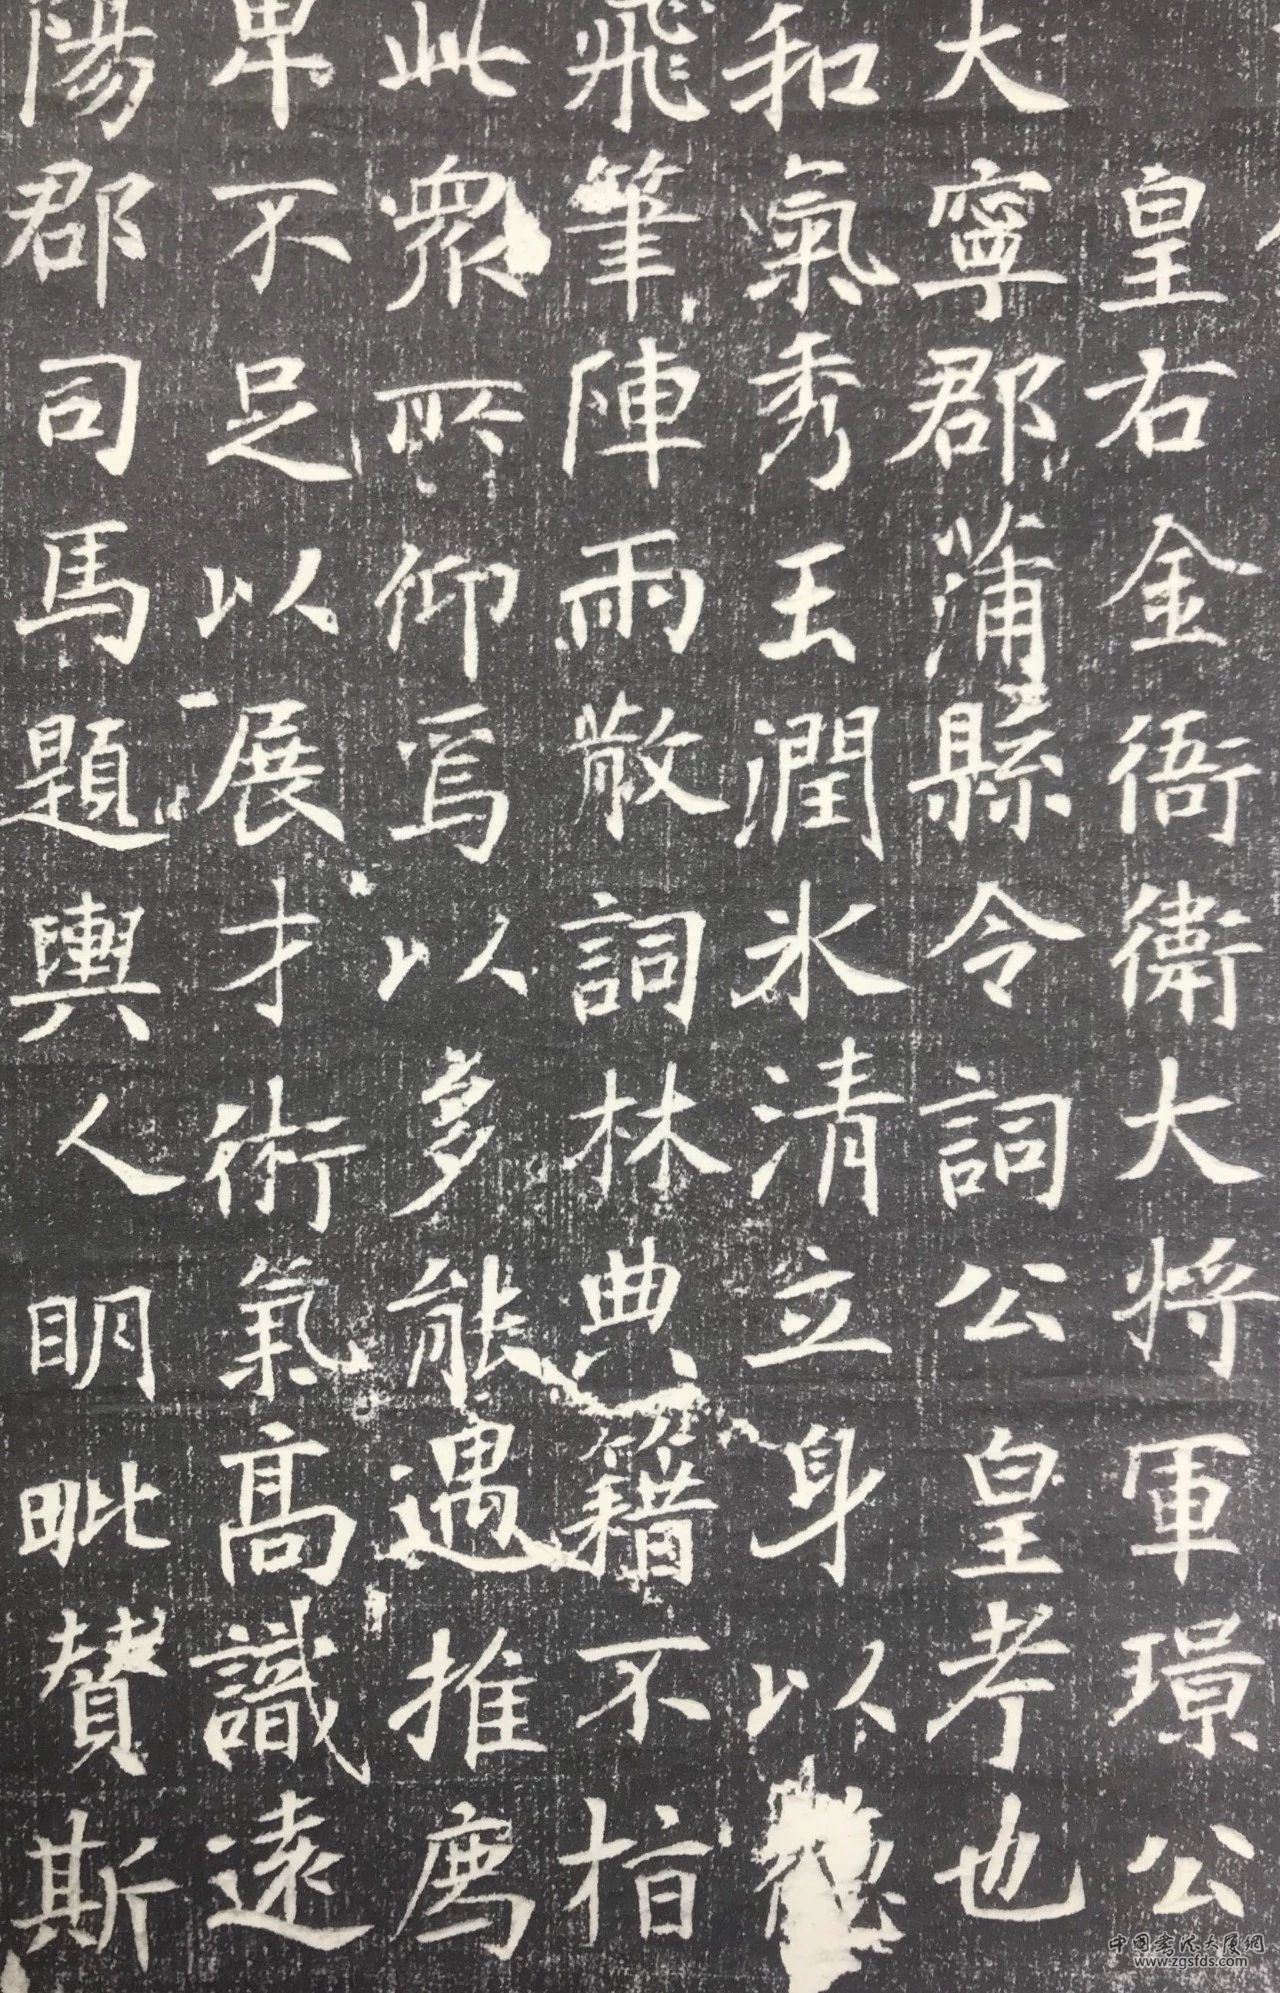 皇右金衙衛大将軍璟公
大寧郡蒲縣令詞公皇考也
和氣秀玉潤氷清立身以德
飛筆陣雨散詞林典籍不指
此衆所仰焉以多能遇推
卑不足以展才術氣高識遠
陽郡司馬題輿人明毗賛斯
中国书法大展網
www.zgsfds.com